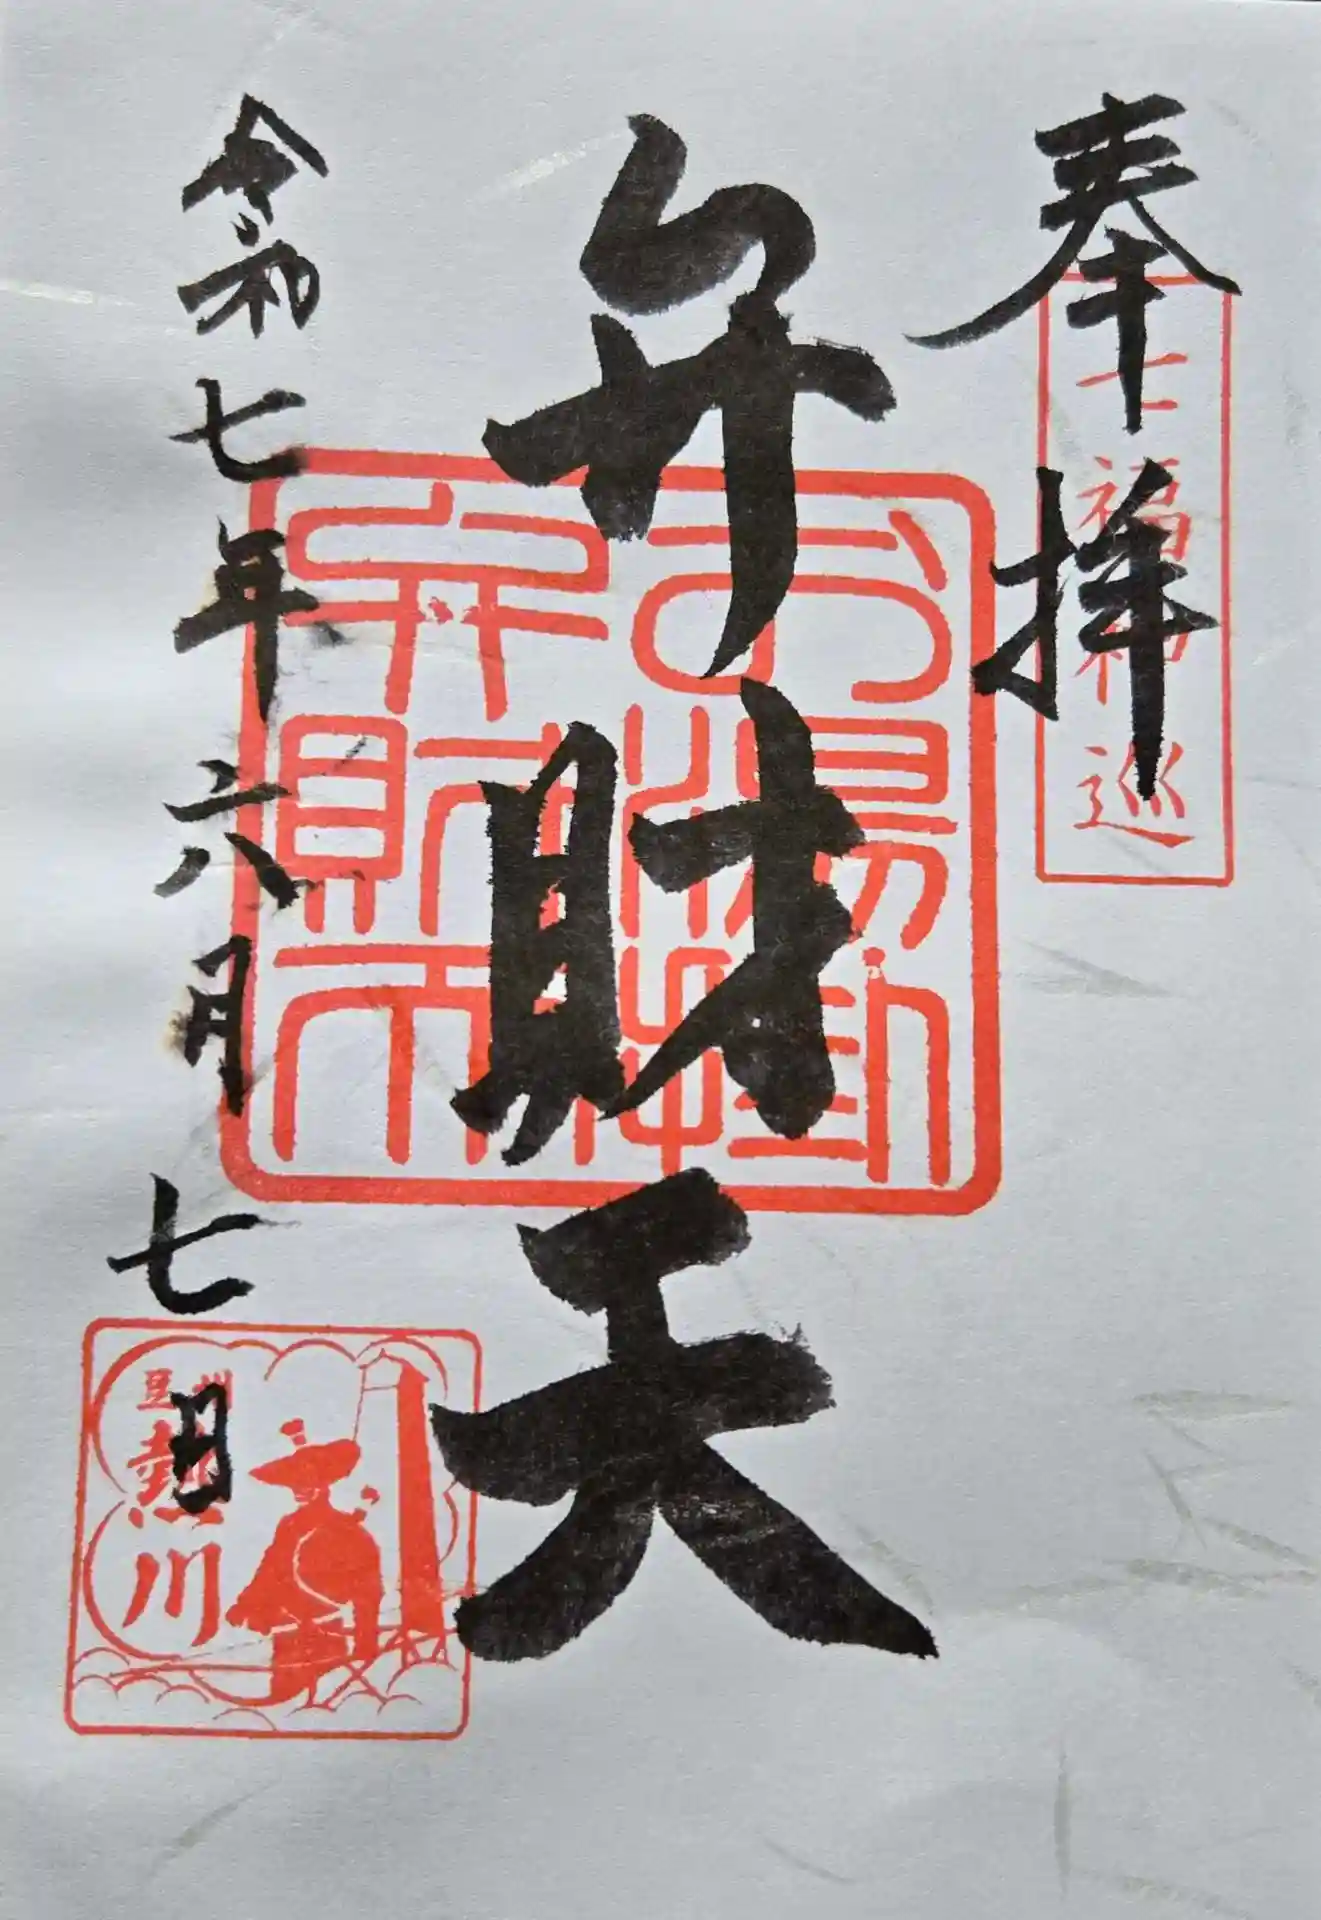 奉拝
七福神巡
弁財天
お湯掛
弁財天
令和七年六月七日
豆州
熱川